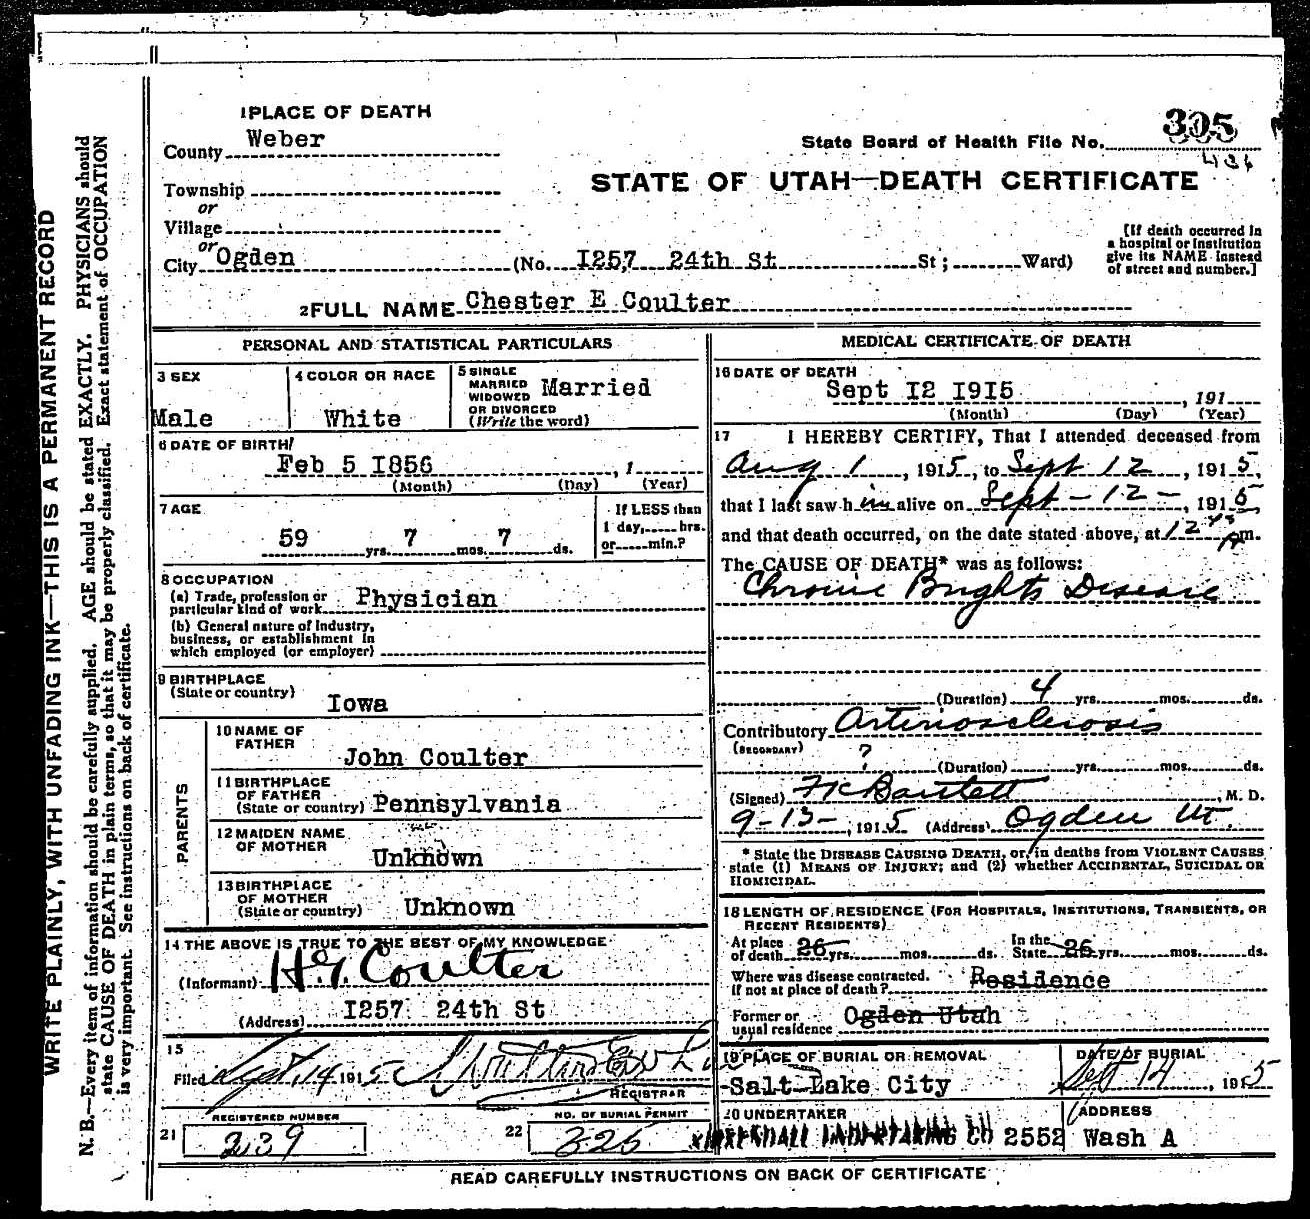 1 PLACE OF DEATH
County Weber
State Board of Health File No. 305
436
Township
or
Village
or
City Ogden (No. I257, 24th St St; Ward)
STATE OF UTAH—DEATH CERTIFICATE
[If death occurred in
a hospital or institution
give its NAME instead
of street and number.]
2 FULL NAME Chester E Coulter
PERSONAL AND STATISTICAL PARTICULARS
3 SEX
Male
4 COLOR OR RACE
White
5 SINGLE
MARRIED
WIDOWED
OR DIVORCED
(Write the word)
Married
6 DATE OF BIRTH
Feb 5 I856, 1
(Month) (Day) (Year)
7 AGE
59 yrs. 7 mos. 7 ds.
If LESS than
1 day, hrs.
or min.?
8 OCCUPATION
(a) Trade, profession or
particular kind of work Physician
(b) General nature of Industry,
business, or establishment in
which employed (or employer)
9 BIRTHPLACE
(State or country)
Iowa
PARENTS
10 NAME OF
FATHER
John Coulter
11 BIRTHPLACE
OF FATHER
(State or country) Pennsylvania
12 MAIDEN NAME
OF MOTHER
Unknown
13 BIRTHPLACE
OF MOTHER
(State or country) Unknown
14 THE ABOVE IS TRUE TO THE BEST OF MY KNOWLEDGE
(Informant) H.G. Coulter
(Address) I257 24th St
15
Filed Sept 14 1915
REGISTRAR
REGISTERED NUMBER
21 239
NO. OF BURIAL PERMIT
22 325
MEDICAL CERTIFICATE OF DEATH
16 DATE OF DEATH
Sept I2 I9I5, 191
(Month) (Day) (Year)
17 I HEREBY CERTIFY, That I attended deceased from
Aug 1, 1915, to Sept 12, 1915,
that I last saw him alive on Sept - 12 -, 1915
and that death occurred, on the date stated above, at 12 m.
The CAUSE OF DEATH* was as follows:
Chronic Brights Disease
(Duration) 4 yrs. mos. ds.
Contributory Arteriosclerosis
(SECONDARY) ?
(Duration) yrs. mos. ds.
(Signed) Bartlett, M. D.
9-13-, 1915 (Address) Ogden Ut.
* State the DISEASE CAUSING DEATH, or, in deaths from VIOLENT CAUSES
state (1) MEANS OF INJURY; and (2) whether ACCIDENTAL, SUICIDAL OR
HOMICIDAL.
18 LENGTH OF RESIDENCE (FOR HOSPITALS, INSTITUTIONS, TRANSIENTS, OR
RECENT RESIDENTS)
At place
of death 26 yrs. mos. ds. In the
State 26 yrs. mos. ds.
Where was disease contracted.
if not at place of death? Residence
Former or
usual residence Ogden Utah
19 PLACE OF BURIAL OR REMOVAL
Salt Lake City
DATE OF BURIAL
Sept 14, 1915
20 UNDERTAKER
KIRKENDALL UNDERTAKING CO
ADDRESS
2552 Wash A
READ CAREFULLY INSTRUCTIONS ON BACK OF CERTIFICATE
WRITE PLAINLY, WITH UNFADING INK—THIS IS A PERMANENT RECORD
N. B.—Every item of information should be carefully supplied. AGE should be stated EXACTLY. PHYSICIANS should
state CAUSE OF DEATH in plain terms, so that it may be properly classified. Exact statement of OCCUPATION
is very important. See instructions on back of certificate.